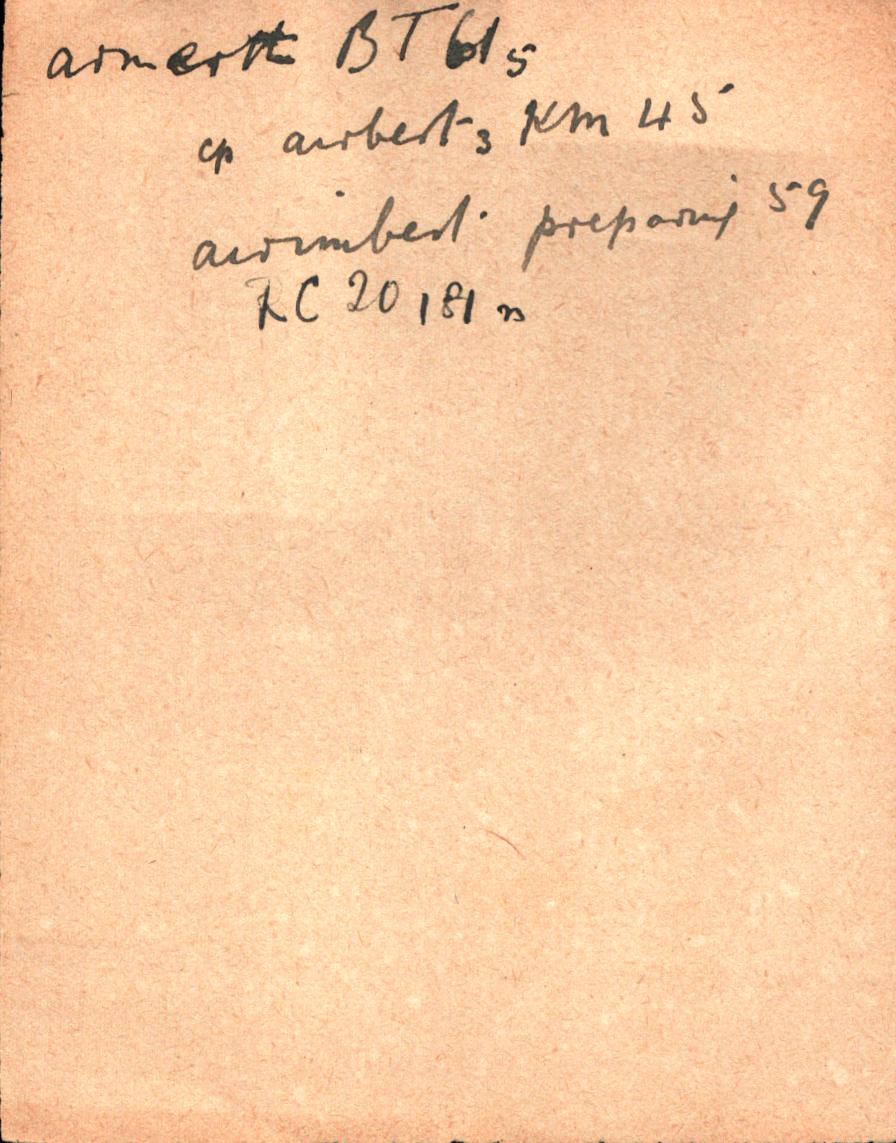 armerth BT 61 5
cp airbert 3 KM 45
airimbert. preparing 59
RC 20 181 n